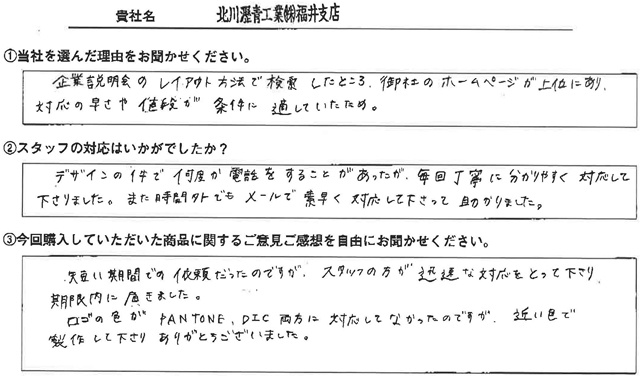 貴社名 北川瀝青工業㈱福井支店
①当社を選んだ理由をお聞かせください。
企業説明会のレイアウト方法で検索したところ、御社のホームページが上位にあり、
対応の早さや値段が条件に適していたため。
②スタッフの対応はいかがでしたか？
デザインの件で何度か電話をすることがあったが、毎回丁寧に分かりやすく対応して
下さりました。また時間外でもメールで素早く対応して下さって助かりました。
③今回購入していただいた商品に関するご意見ご感想を自由にお聞かせください。
短い期間での依頼だったのですが、スタッフの方が迅速な対応をとって下さり、
期限内に届きました。
ロゴの色がPANTONE、DIC両方に対応してなかったのですが、近い色で
製作して下さりありがとうございました。